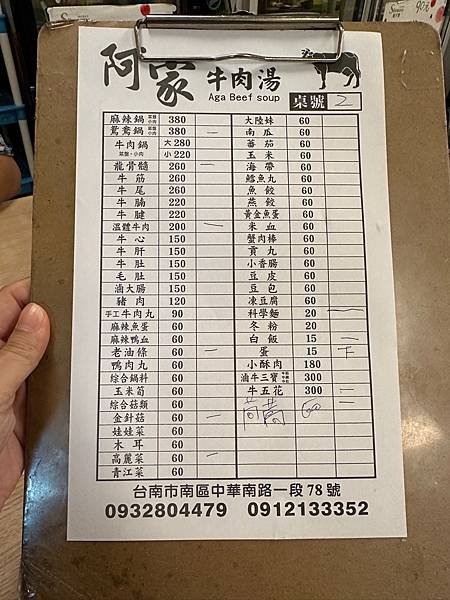 阿家 牛肉湯
Aga Beef soup
桌號 2
麻辣鍋 菜盤小肉 380
鴛鴦鍋 菜盤小肉 380 一
牛肉鍋 菜盤、小肉 大 280
小 220
龍骨髓 260 一
牛筋 260
牛尾 260
牛腩 220
牛腱 220
溫體牛肉 200 一
牛心 150
牛肝 150
牛肚 150
毛肚 150
滷大腸 150
豬肉 120
手工牛肉丸 90
麻辣魚蛋 60
麻辣鴨血 60
老油條 60 一
鴨肉丸 60
綜合鍋料 60
玉米筍 60
綜合菇類 60
金針菇 60 一
娃娃菜 60
木耳 60
高麗菜 60 一
青江菜 60
大陸妹 60
南瓜 60
蕃茄 60
玉米 60
海帶 60
鱈魚丸 60
魚餃 60
燕餃 60
黃金魚蛋 60
米血 60
蟹肉棒 60
貢丸 60
小香腸 60
豆皮 60
豆包 60
凍豆腐 60
科學麵 20 一
冬粉 20
白飯 15 二
蛋 15 下
小酥肉 180
滷牛三寶 300
牛五花 300 二
茼蒿 60 一
台南市南區中華南路一段78號
0932804479 0912133352